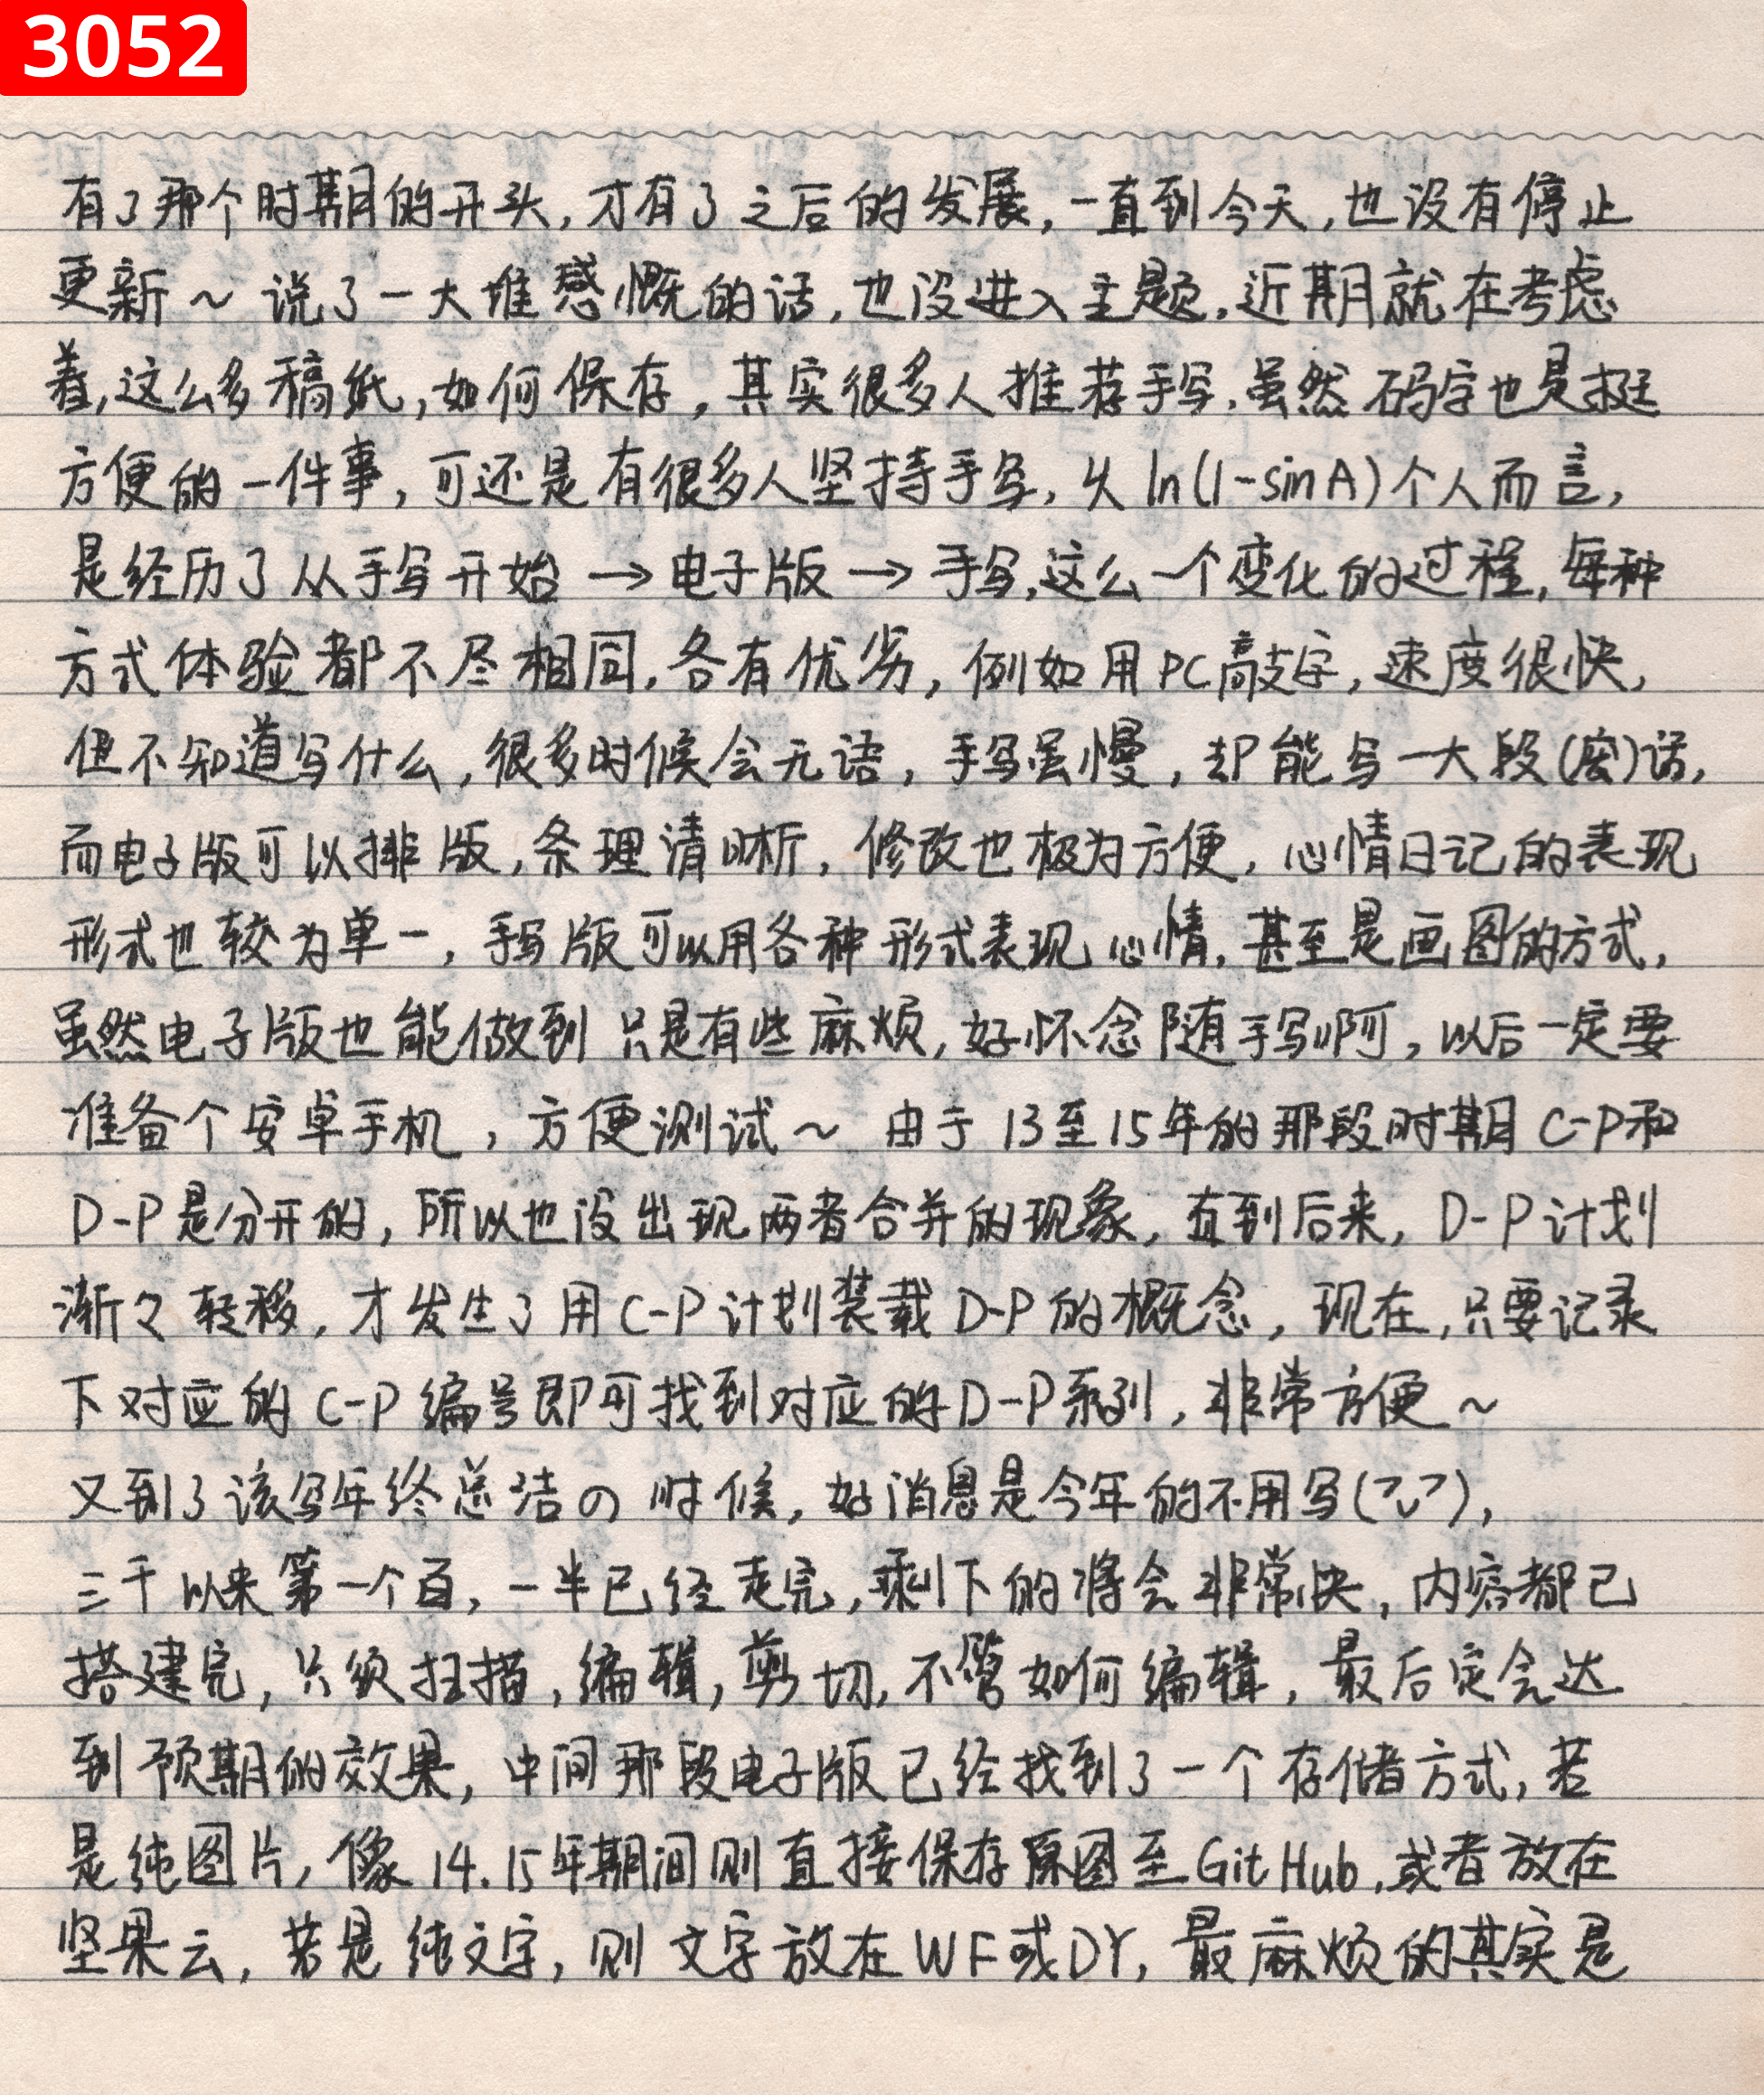 3052
有了那个时期的开头,才有了之后的发展,一直到今天,也没有停止
更新~ 说了一大堆感慨的话,也没进入主题.近期就在考虑
着,这么多稿纸,如何保存,其实很多人推荐手写.虽然码字也是挺
方便的一件事,可还是有很多人坚持手写,从ln(1-sinA)个人而言,
是经历了从手写开始→电子版→手写,这么一个变化的过程,每种
方式体验都不尽相同.各有优劣,例如用PC敲字,速度很快,
但不知道写什么,很多时候会无语,手写虽慢,却能写一大段(密)话,
而电子版可以排版,条理清晰,修改也极为方便,心情日记的表现
形式也较为单一,手写版可以用各种形式表现心情.甚至是画图的方式,
虽然电子版也能做到只是有些麻烦,好怀念随手写啊,以后一定要
准备个安卓手机,方便测试~ 由于13至15年的那段时期C-P和
D-P是分开的,所以也没出现两者合并的现象,直到后来,D-P计划
渐々转移,才发生了用C-P计划装载D-P的概念,现在,只要记录
下对应的C-P编号即可找到对应的D-P系列,非常方便~
又到了该写年终总结の时候,好消息是今年的不用写(乛◡乛),
三千以来第一个百,一半已经走完,剩下的将会非常快,内容都已
搭建完,只须扫描,编辑,剪切,不管如何编辑,最后定会达
到预期的效果,中间那段电子版已经找到了一个存储方式,若
是纯图片,像14.15年期间则直接保存原图至GitHub.或者放在
坚果云,若是纯文字,则文字放在WF或DY,最麻烦的其实是